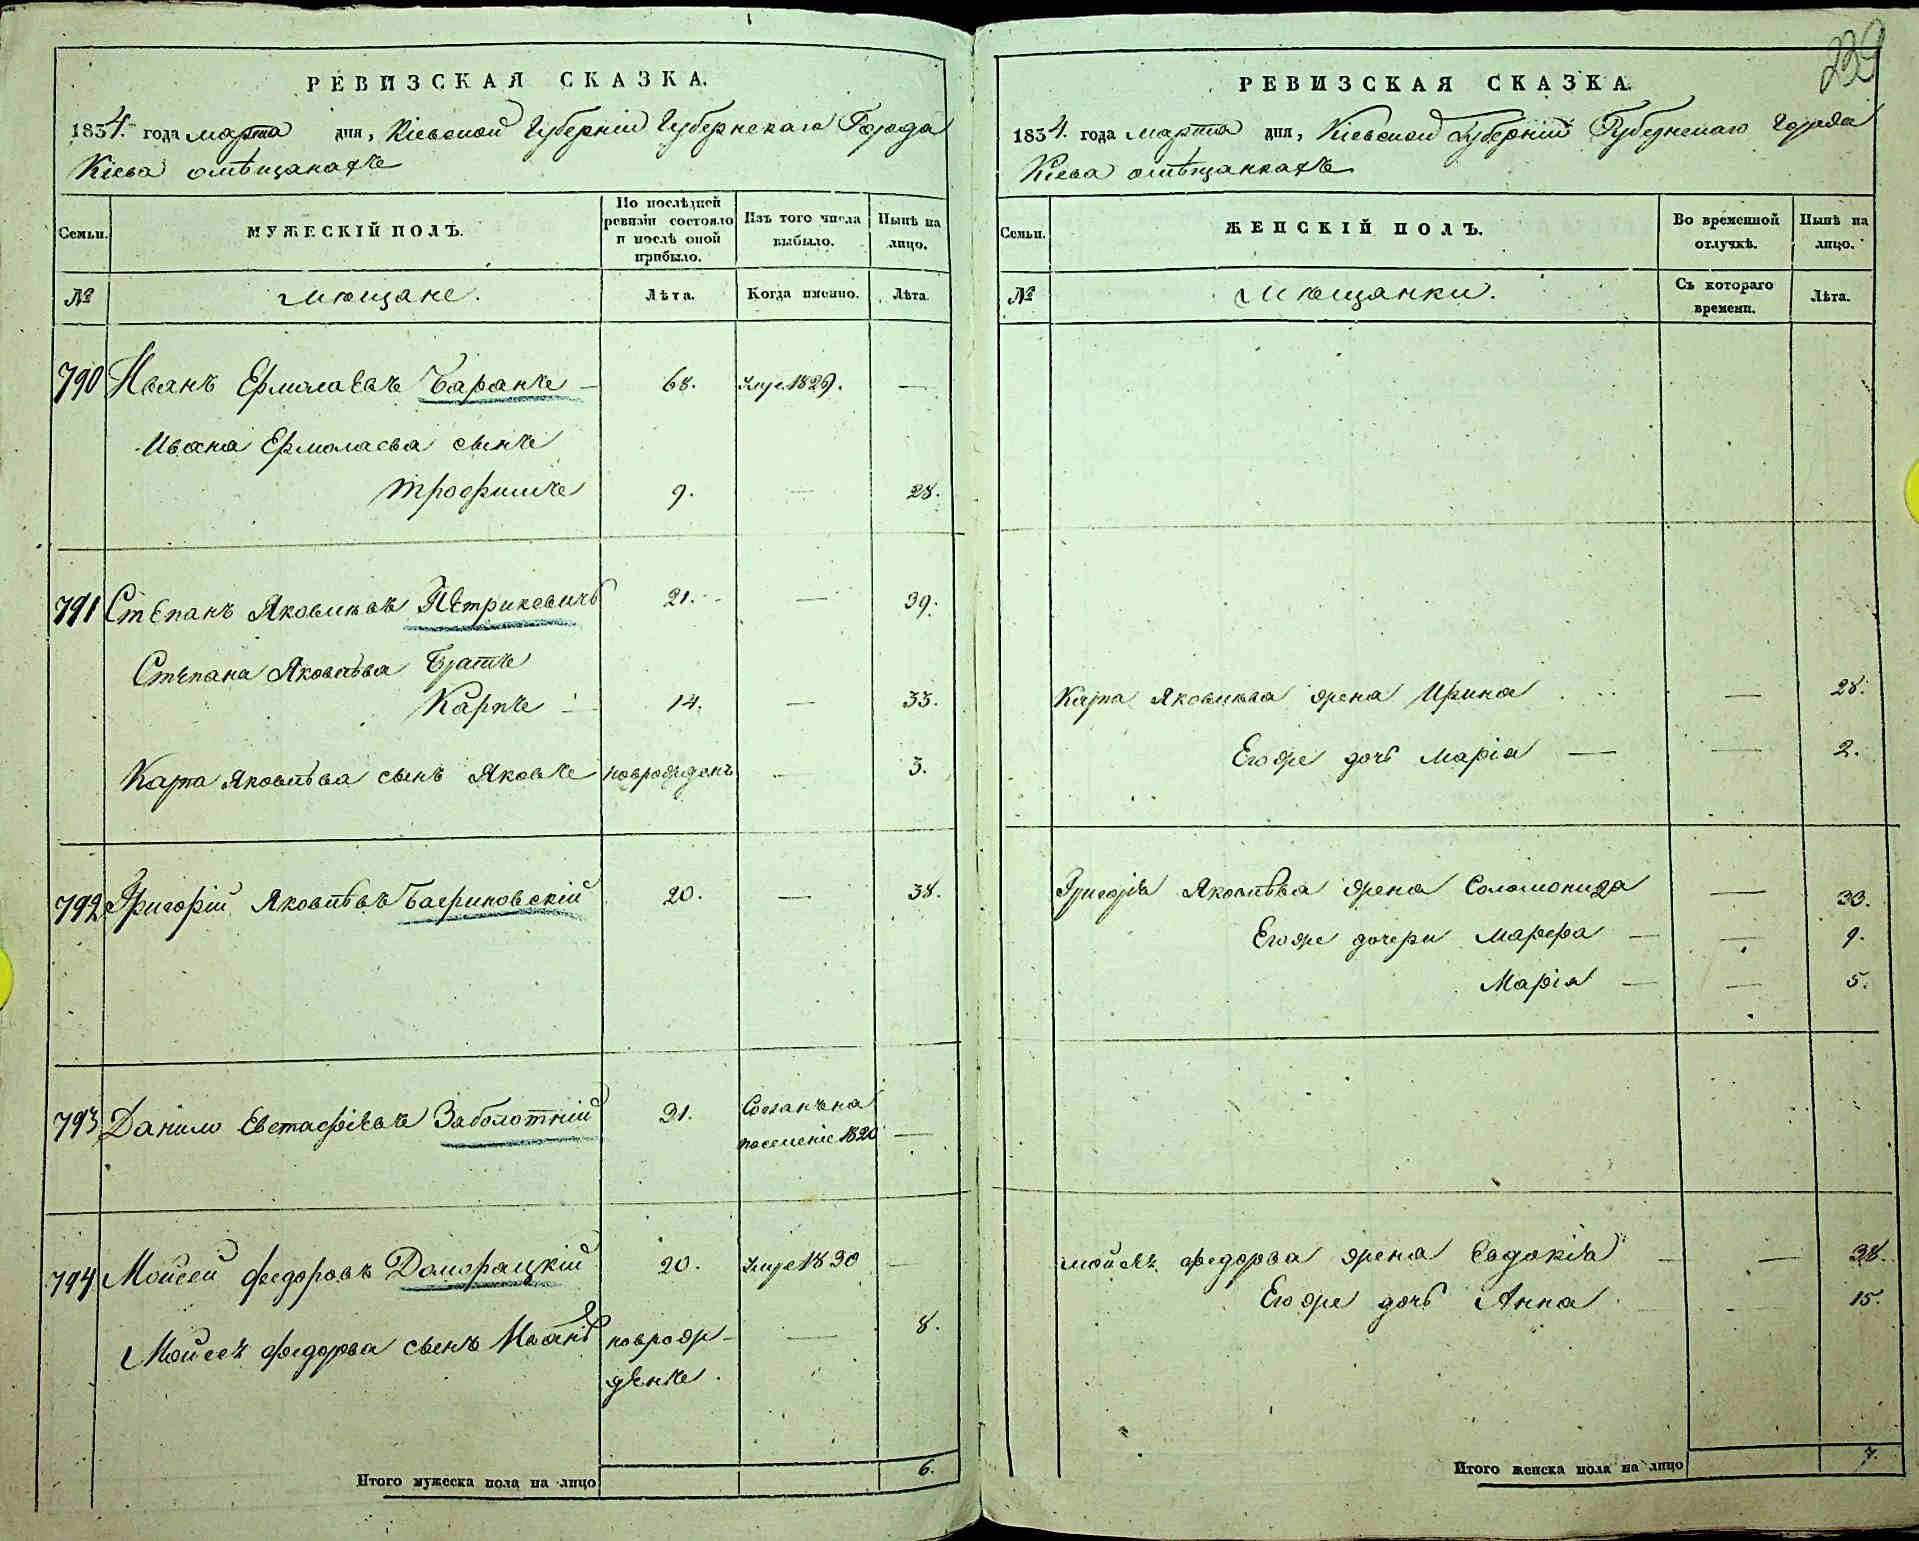 РЕВИЗСКАЯ СКАЗКА.
1834. года марта дня, Кіевской Губерніи Губернскаго Города
Кіева омѣщанахъ
Семьи.
МУЖЕСКІЙ ПОЛЪ.
По послѣдней ревизіи состояло и послѣ оной прибыло.
Изъ того числа выбыло.
Нынѣ на лицо.
№
Мѣщане.
Лѣта.
Когда именно.
Лѣта.
790 Иванъ Ермолаевъ Баранъ — 68. Умре 1829. —
Ивана Ермолаева сынъ
Трофимъ 9. — 28.
791 Степанъ Яковлевъ Петриковичъ 21. — 39.
Степана Яковлѣва Братъ
Карпъ — 14. — 33.
Карпа Яковлѣва сынъ Яковъ новрожденъ — 3.
792 Григорій Яковлѣвъ Багриновскій 20. — 38.
793 Данило Евстафіевъ Заболотній 21. Сосланъ на
поселеніе 1820 —
794 Моисей Федоровъ Доморацкій 20. Умре 1830 —
Моисея Федорова сынъ Иванъ новрож- — 8.
денъ.
Итого мужеска пола на лицо 6.
РЕВИЗСКАЯ СКАЗКА.
1834. года марта дня, Кіевской Губерніи Губернскаго Города
Кіева омѣщанкахъ
Семьи.
ЖЕНСКІЙ ПОЛЪ.
Во временной отлучкѣ.
Нынѣ на лицо.
№
Мѣщанки.
Съ котораго времени.
Лѣта.
Карпа Яковлева жена Ирина — 28.
Егоже дочь Марія — — 2.
Григорія Яковлѣва жена Соломонида — 33.
Егоже дочери Марфа — — 9.
Марія — — 5.
Моисея Федорова жена Евдокія — — 38.
Егоже дочь Анна 15.
Итого женска пола на лицо 7.